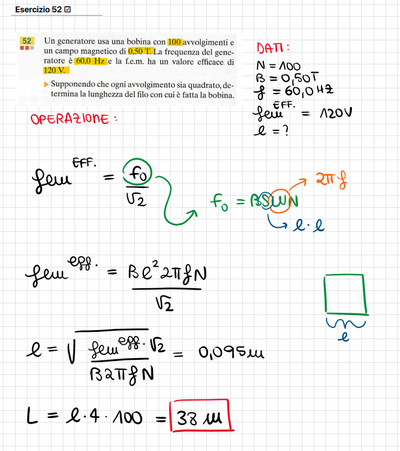 Esercizio 52 ☑
52 Un generatore usa una bobina con 100 avvolgimenti e
un campo magnetico di 0,50 T. La frequenza del gene-
ratore è 60,0 Hz e la f.e.m. ha un valore efficace di
120 V.
▶ Supponendo che ogni avvolgimento sia quadrato, de-
termina la lunghezza del filo con cui è fatta la bobina.
DATI:
N = 100
B = 0,50T
f = 60,0 Hz
fem EFF. = 120V
l = ?
OPERAZIONE:
fem EFF. = f₀ / √2
f₀ = BSWN
→ 2πf
→ l · l
fem eff. = Bl²2πfN / √2
l = √(fem eff. · √2 / B2πfN) = 0,095m
l
L = l · 4 · 100 = 38 m